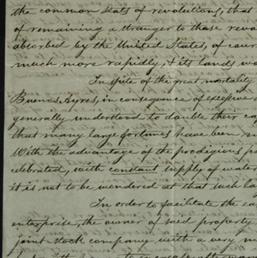 the common seats of revolutions, that
of remaining a stranger to those revo
absorbed by the United States, of cour
much more rapidly, & its lands wo
In spite of the great mortality
Buenos Ayres, in consequence of excessive
generally understood to double their ca
that many large fortunes have been m
With the advantage of the prodigious pa
celebrated, with constant supply of water
it is not to be wondered at that such la
In order to facilitate the ca
enterprise, the owner of said property
joint-stock company with a very m